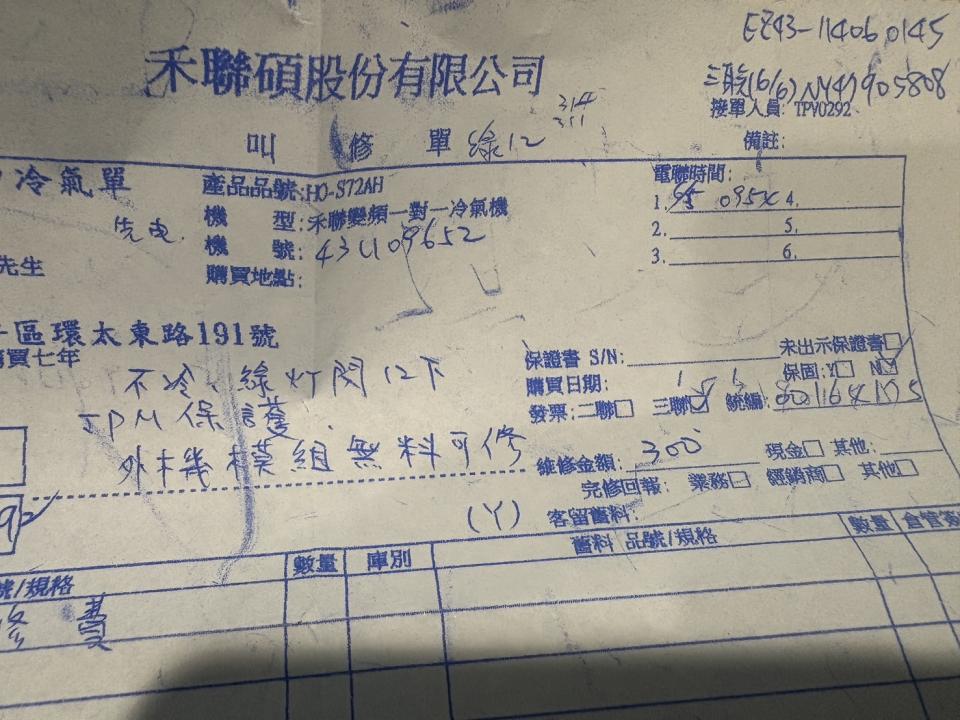 EZ43-114060145
禾聯碩股份有限公司
三聯(6/6) NY47905808
接單人員: TPY0292
叫修單 綠12 314 311
備註:
冷氣單
產品品號:HO-S72AH
電聯時間:
洗电
機型:禾聯變頻一對一冷氣機
1. 4.
機號: 43U109652
2. 5.
先生
購買地點:
3. 6.
區環太東路191號
購買七年
保證書 S/N:
未出示保證書□
不冷、綠灯閃12下
購買日期:
保固:Y□ N☑
IPM保護.
發票:二聯□ 三聯☑ 統編:
外機模組無料可修
維修金額: 300
現金□ 其他:
完修回報: 業務□ 經銷商□ 其他□
(Y) 客留舊料:
號/規格 數量 庫別 舊料 品號/規格 數量
修費